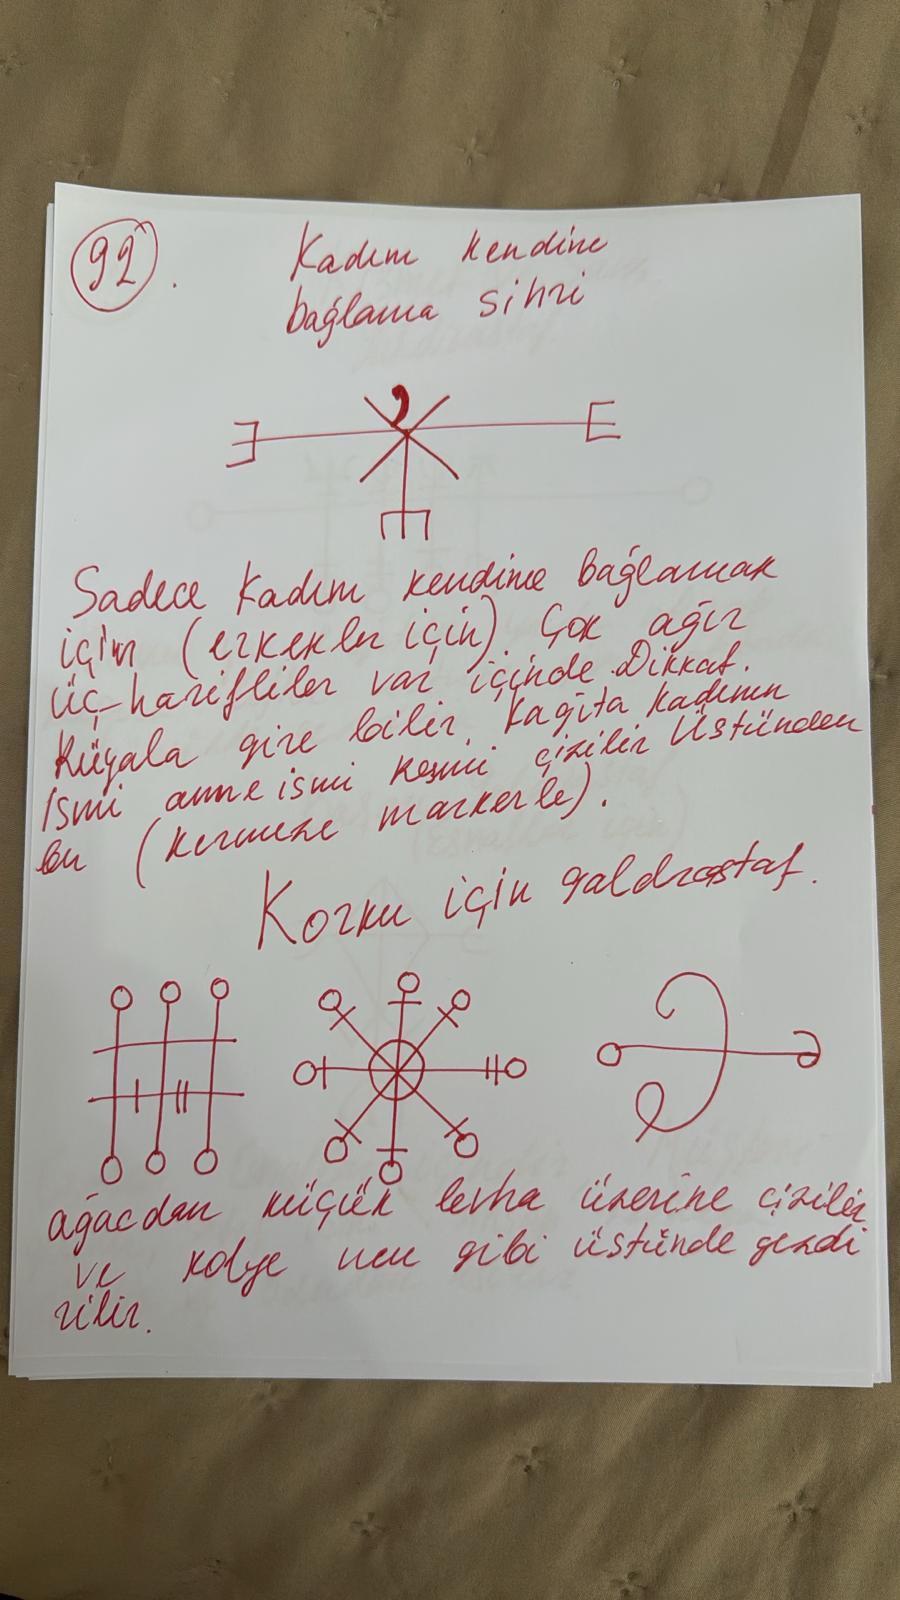 92.
Kadını kendine
bağlama sihri
Sadece kadını kendine bağlamak
için (erkekler için) Çok ağır
üç-harifliler var içinde Dikkat.
Rüyala gire bilir. Kağıta kadının
ismi anne ismi resmi çizilir Üstünden
bu (kırmızı markerle).
Korku için galdrastaf.
ağacdan küçük levha üzerine çizilir
ve kolye gibi üstünde gezdi
rilir.